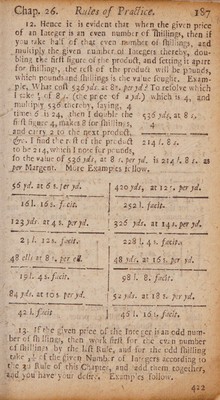 Chap. 26. Rules of Practice. 187
12. Hence it is evident that when the given price
of an Integer is an even number of shillings, then if
you take half of that even number of shillings, and
multiply the given number of Integers thereby, dou-
bling the first figure of the product, and setting it apart
for shillings, the rest of the product will be pounds,
which pounds and shillings is the value sought. Exam-
ple, What cost 536 yds. at 8 s. per yd? To resolve which
I take ½ of 8 s. (the price of a yd.) which is 4, and
multiply 536 thereby, saying, 4
times 6 is 24, then I double the
first figure 4, makes 8 for shillings,
and carry 2 to the next product,
&c. I find the rest of the product
to be 214, which I note for pounds,
536 yds, at 8 s.
4
214 l. 8 s.
so the value of 536 yds, at 8 s. per yd. is 214 l. 8 s. as
per Margent. More Examples follow.
56 yd. at 6 s. per yd.
16 l. 16 s. facit.
420 yds, at 12 s. per yd.
252 l. facit.
123 yds. at 4 s. per yd.
l. 12 s. facit.
326 yds. at 14 s. per yd.
228 l. 4 s. facit.
48 ells at 8 s. per ell.
19 l. 4 s. facit.
48 yds, at 16 s. per yd.
98 l. 8. facit.
84 yds, at 10 s. per yd.
42 l. facit
52 yds. at 18 s. per yd.
46 l. 16 s. facit.
13. If the given price of the Integer is an odd num-
ber of shillings, then work first for the even number
of shillings by the last Rule, and for the odd shilling
take of the given Number of Integers according to
the 3d Rule of this Chapter, and add them together,
and you have your desire. Examples follow.
422